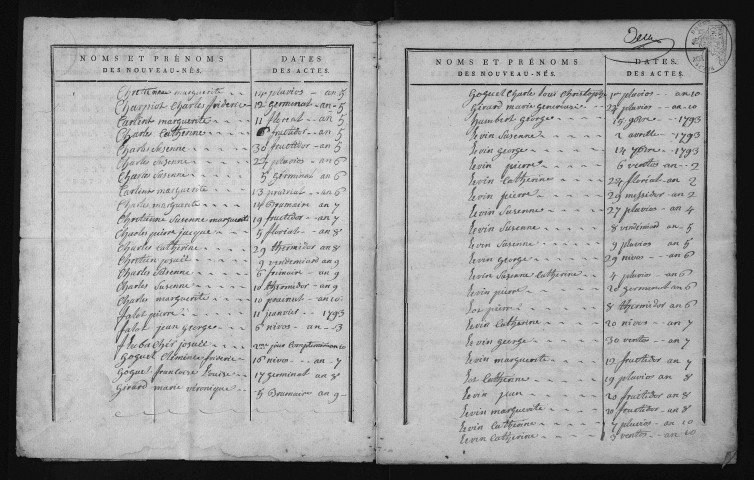 NOMS ET PRÉNOMS DES NOUVEAU-NÉS. DATES DES ACTES.
Chretienne marguerite 14 pluvios - an 5
Charpiot Charles friderice 12 germinal - an 5
Carlint marguerite 11 florial - an 5
Charles Catherine 6 fructidor - an 5
Charles Susenne 30 fructidor - an 5
Charles Susenne 22 pluvios - an 6
Charles Susenne 5 germinal an 6
Carlint marguerite 13 prairial - an 6
Charles marguerite 14 Brumaire an 7
Chretienne Susenne marguerite 19 fructidor - an 7
Charles pierre jacque 5 florial - an 8
Charles Catherine 29 thermidor an 8
Chretien joseil 9 vendemiaire an 9
Charles Susenne 6 frimaire - an 9
Charles Susenne 10 thermidor an 9
Charles marguerite 10 prairial - an 10
falot pierre 11 janvier - 1793
falot jean george 5 nivos - an 3
joseil complementaire an 10
Goguel Clemence friderice 16 nivos - an 7
Goguel francoise Louise 17 germinal an 8
Girard marie véronique 5 Brumaire an 9
Deux
NOMS ET PRÉNOMS DES NOUVEAU-NÉS. DATES DES ACTES.
Goguel Charles Louis Christophe 15 pluvios - an 10
Girard marie genevieve 22 pluvios - an 10
humbert george 15 9bre - 1793
Levin Susenne 2 avrille - 1793
Levin george 14 7bre - 1793
Levin pierre 6 ventos - an 2
Levin Catherine 24 florial - an 2
Levin pierre 29 messidor an 2
Levin Susenne 27 pluvios - an 4
Levin Susenne 8 vendemiaire an 5
Levin Susenne 9 pluvios an 5
Levin george 29 nivos - an 6
Levin Susenne Catherine 4 pluvios - an 6
Levin pierre 20 germinal an 6
pierre 8 thermidor an 6
Levin Catherine 20 nivos - an 7
Levin george 30 ventos - an 7
Levin marguerite 12 fructidor an 7
Catherine 19 pluvios an 8
Levin jean 20 fructidor an 8
Levin marguerite 20 fructidor - an 8
Levin Catherine 7 pluvios - an 10
Levin Catherine 9 ventos - an 10